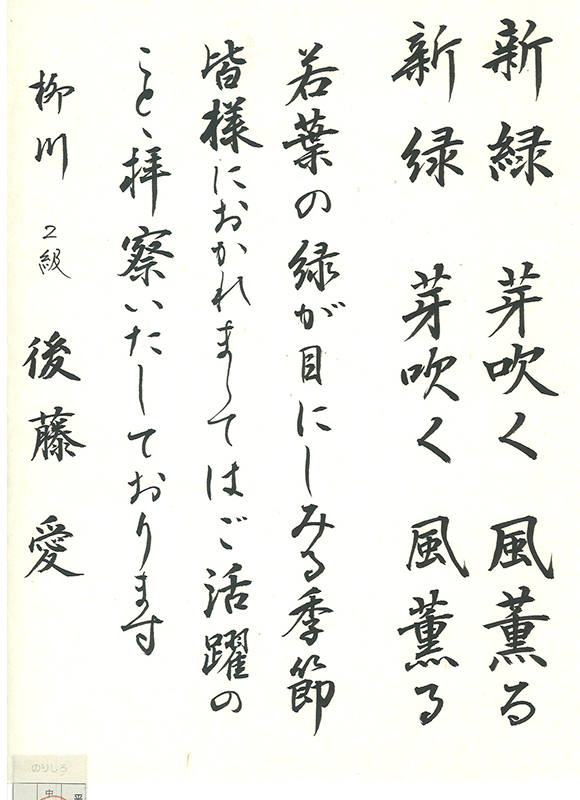 新緑 芽吹く 風薫る
新緑 芽吹く 風薫る
若葉の緑が目にしみる季節
皆様におかれましてはご活躍の
ことゝ拝察いたしております
柳川 2級 後藤愛
のりしろ
中